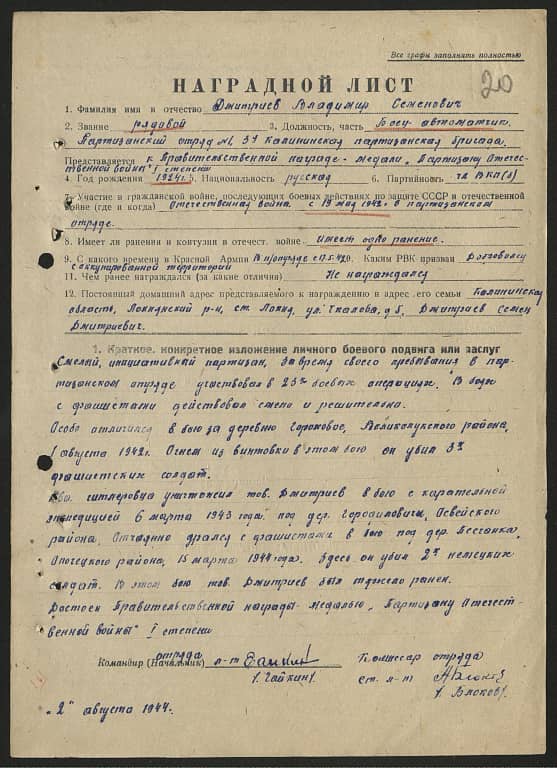 Все графы заполнять полностью
20
НАГРАДНОЙ ЛИСТ
1. Фамилия имя и отчество Дмитриев Владимир Семенович
2. Звание рядовой 3. Должность, часть Боец-автоматчик.
Партизанский отряд №1, 3й Калининская партизанская бригада.
Представляется к Правительственной награде - медали "Партизану Отечес-
твенной войны" I степени
4. Год рождения 1924г. 5. Национальность русская 6. Партийность чл ВКП(б)
7. Участие в гражданской войне, последующих боевых действиях по защите СССР и отечественной
войне (где и когда) Отечественная война. с 19 мая 1942г. в партизанском
отряде.
8. Имеет ли ранения и контузии в отечест. войне имеет одно ранение.
9. С какого времени в Красной Армии В п/отряде с 19.5.42г. Каким РВК призван Доброволец
с оккупированной территории
11. Чем ранее награждался (за какие отличия) Не награждался
12. Постоянный домашний адрес представляемого к награждению и адрес его семьи Калининская
область, Локнянский р-н, ст. Локня, ул. Чкалова, д 5, Дмитриев Семен
Дмитриевич.
1. Краткое, конкретное изложение личного боевого подвига или заслуг
Смелый, инициативный партизан, за время своего пребывания в пар-
тизанском отряде участвовал в 23х боевых операциях. В боях
с фашистами действовал смело и решительно.
Особо отличился в бою за деревню Гороховое, Великолукского района,
1 августа 1942г. Огнем из винтовки в этом бою он убил 3х
фашистских солдат.
Два гитлеровца уничтожил тов. Дмитриев в бою с карательной
экспедицией 6 марта 1943 года под дер. Городиловичи, Освейского
района. Отчаянно дрался с фашистами в бою под дер. Бессонка,
Опочецкого района, 15 марта 1944 года. Здесь он убил 2х немецких
солдат. В этом бою тов. Дмитриев был тяжело ранен.
Достоин Правительственной награды - медалью "Партизану Отечест-
венной войны" I степени
отряда
Командир (Начальник) л-т
/Гайкин/
Комиссар отряда
ст. л-т
/Блоков/
"2" августа 1944г.